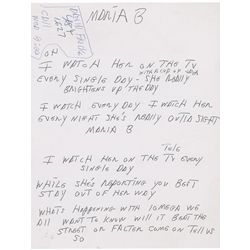 MARIA B
OH
I WATCH HER ON THE TV
EVERY SINGLE DAY - SHE REALLY
BRIGHTENS UP THE DAY
I WATCH EVERY DAY I WATCH HER
EVERY NIGHT SHE'S REALLY OUTTA SIGHT
MARIA B
I WATCH HER ON THE TV EVERY
SINGLE DAY
WHILE SHE'S REPORTING YOU BEST
STAY OUT OF HER WAY
WHATS HAPPENING WITH IOMEGA WE
ALL WANT TO KNOW WILL IT BEAT THE
STREET OR FALTER COME ON TELL US
SO